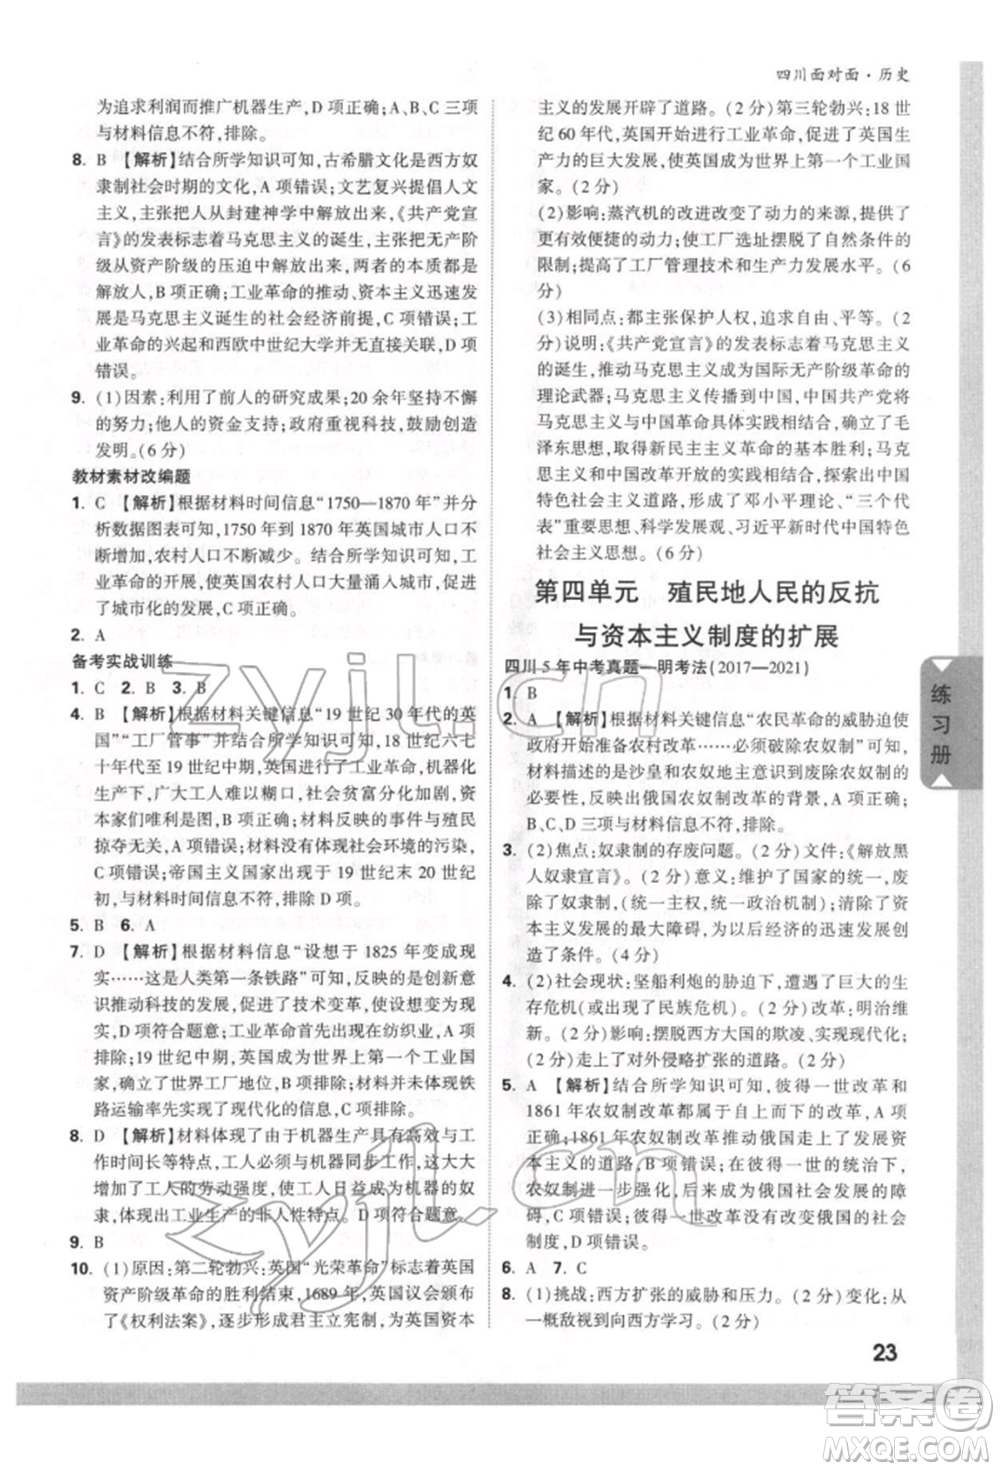 四川面对面·历史
为追求利润而推广机器生产,D 项正确;A、B、C 三项
与材料信息不符,排除。
8. B 【解析】结合所学知识可知,古希腊文化是西方奴
隶制社会时期的文化,A 项错误;文艺复兴提倡人文
主义,主张从封建神学中解放出来,《共产党宣
言》的发表标志着马克思主义的诞生,主张把无产阶级
从资产阶级的压迫中解放出来,两者的共同之处是
解放人,B 项正确;工业革命的开展、资本主义迅速发
展是马克思主义诞生的社会经济前提,C 项错误;工业
革命的兴起和西欧中世纪大学并无直接联系,D 项
错误。
9. (1)因素:利用了前人的研究成果;20 余年坚持不懈
的努力;他人的资金支持;政府重视科技,鼓励创造
发明。(6 分)
教材素材改编题
1. C 【解析】根据材料时间信息“1750—1870 年”并分
析数据图表可知,1750 年到 1870 年英国城市人口不
断增加,农村人口不断减少。结合所学知识可知,工
业革命的开展,使英国农村人口大量涌入城市,促进
了城市化的发展,C 项正确。
2. A
备考实战训练
1. C 2. B 3. B
4. B 【解析】根据材料关键信息“19 世纪 30 年代的英
国”“工厂管事”并结合所学知识可知,18 世纪六七
十年代至 19 世纪中期,英国处于工业革命时期。工
业革命中,广大工人难以糊口,社会贫富分化加剧,
工厂主和商人们唯利是图,B 项正确;材料反映的事件与殖民
掠夺无关,A 项错误;材料没有涉及社会环境的污染,
C 项错误;帝国主义国家是在 19 世纪末 20 世纪
初,与材料时间信息不符,排除 D 项。
5. B 6. A
7. D 【解析】根据材料信息“设想于 1825 年变成现实
……这是人类第一条铁路”可知,反映的是创新意
识推动科技的发展,促进了技术变革,使设想变为现
实,D 项符合题意;工业革命开始于纺织业,A 项
排除;19 世纪中期,英国成为第一个工业国家,并成
为了世界工厂地位,B 项排除;材料无法体现英国铁
路运输率先实现了现代化的信息,C 项排除。
8. D 【解析】材料体现了由于机器生产具有高效与工
作时长等特点,工人必须与机器同步工作,大大增加
了工人的劳动强度,使工人日益成为机器的奴
隶,体现出工业生产的非人性特点。D 项符合题意。
9. B
10. (1)原因:第二轮勃兴:英国“光荣革命”标志着英国
资产阶级革命的胜利结束,1689 年,英国议会颁布
了《权利法案》,逐步形成君主立宪制,为英国资本
主义的发展开辟了道路。(2 分)第三轮勃兴:18 世
纪 60 年代,英国开始进行工业革命,促进了英国生
产力的巨大发展,使英国成为世界上第一个工业国
家。(2 分)
(2)影响:蒸汽机的改进改变了动力的来源,提供了
更有效便捷的动力;使工厂选址摆脱了自然条件的
限制;提高了工厂管理技术和生产力发展水平。(6
分)
(3)相同点:都主张保护人权,追求自由、平等。(2
分)说明:《共产党宣言》的发表标志着马克思主义
的诞生,从此,马克思主义成为国际无产阶级革命的
理论武器;马克思主义传播到中国,中国共产党将
马克思主义与中国革命具体实践相结合,创立了毛
泽东思想,取得新民主主义革命的基本胜利;马克思
主义和中国改革开放的实践相结合,探索出中国
特色社会主义道路,形成了邓小平理论、“三个代
表”重要思想、科学发展观、习近平新时代中国特色
社会主义思想。(6 分)
第四单元 殖民地人民的反抗
与资本主义制度的扩展
四川 5 年中考真题一明考法(2017—2021)
1. B
2. A 【解析】根据材料关键信息“农民革命的威胁迫使
政府开始准备农村改革……必须破除农奴制”可知,
材料描述的是沙皇和农奴地主意识到要废除农奴制的
必要性,反映出俄国农奴制改革的背景,A 项正确;
B、C、D 三项与材料信息不符,排除。
3. (2)焦点:奴隶制的存废问题。(2 分)文件:《解放黑
人奴隶宣言》。(2 分)意义:维护了国家的统一,废
除了奴隶制,清除了资本主义发展的最大障碍,为以后经济的迅速发展创
造了条件。(4 分)
4. (2)社会现状:坚船利炮的威胁下,遭遇了巨大的生
存危机(或出现了民族危机)。(2 分)改革:明治维
新。(2 分)影响:摆脱西方大国的欺凌、实现现代化;
(2 分)走上了对外侵略扩张的道路。(2 分)
5. A 【解析】结合所学知识可知,彼得一世改革和
1861 年农奴制改革都属于自上而下的改革,A 项正
确;1861 年农奴制改革推动俄国走上了发展资
本主义的道路,B 项错误;彼得一世的统治下,
农奴制进一步强化,后成为俄国社会发展的障
碍,C 项错误;彼得一世改革没有改变俄国的社会
制度,D 项错误。
6. A 7. C
8. (1)挑战:西方扩张的威胁和压力。(2 分)变化:从
一概藐视到向西方学习。(2 分)
练习册
23
zyjl.cn
zyjl.cn
答案圈
MXQE.COM